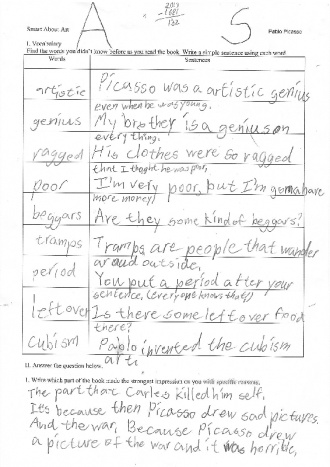 A
S
2013
- 1881
132
Smart About Art
Pablo Picasso
I. Vocabulary
Find the words you didn't know before as you read the book. Write a simple sentence using each word
Words
Sentences
artistic
Picasso was a artistic genius
even when he was young.
genius
My brothey is a genius on
every thing.
ragged
His clothes were so ragged
that I thoght he was poor.
poor
I'm very poor, but I'm gonna have
more money)
beggars
Are they some kind of beggars?
tramps
Tramps are people that wander
aroud outside.
period
You put a period after your
sentence, (everyone knows that!)
leftover
Is there some leftover food
there?
cubism
Pablo invented the cubism
art.
II. Answer the question below.
1. Write which part of the book made the strongest impression on you with specific reasons.
The part that Carles killed him self.
It's because then Picasso drew sad pictures.
And the war, Because Picasso drew
a picture of the war and it was horrible.